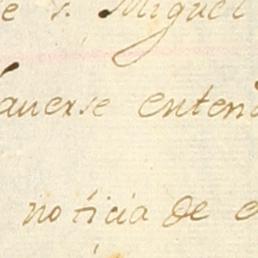 e s. Miguel
auerse entend
noticia de e